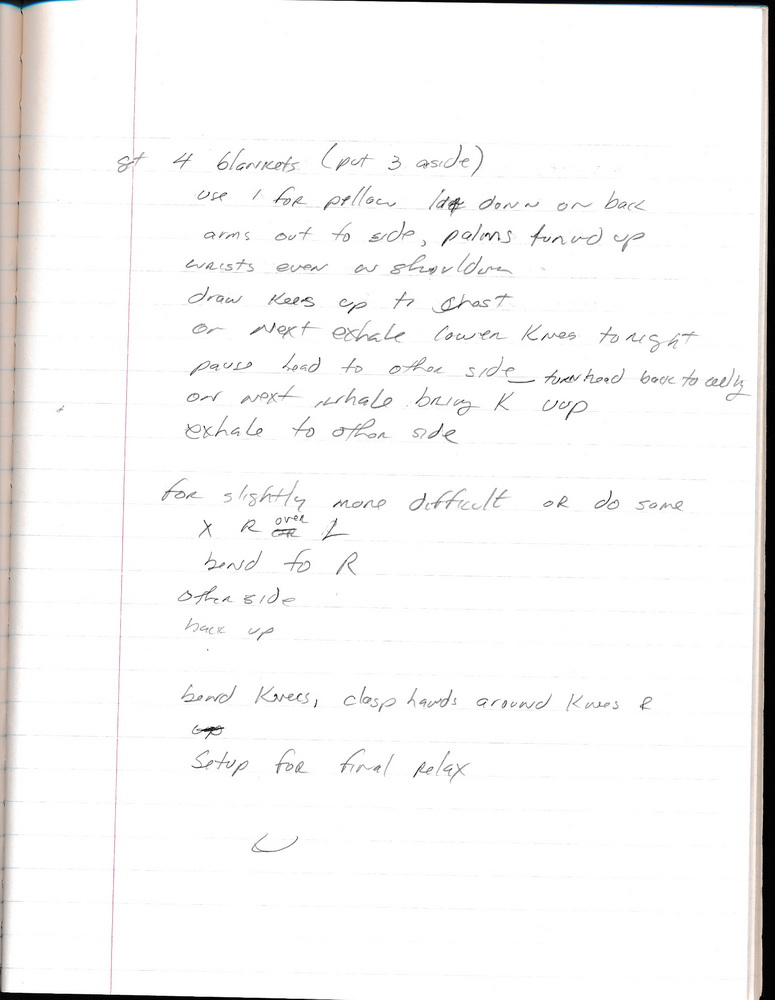 gt 4 blankets (put 3 aside)
use 1 for pillow lay down on back
arms out to side, palms turned up
wrists even w shoulders
draw kees up to chest
on next exhale lower knees to right
pause head to other side — turn head back to ceiling
on next inhale bring K uup
exhale to other side
for slightly more difficult or do same
X R over L
bend to R
other side
back up
bend knees, clasp hands around knees R
Setup for final relax